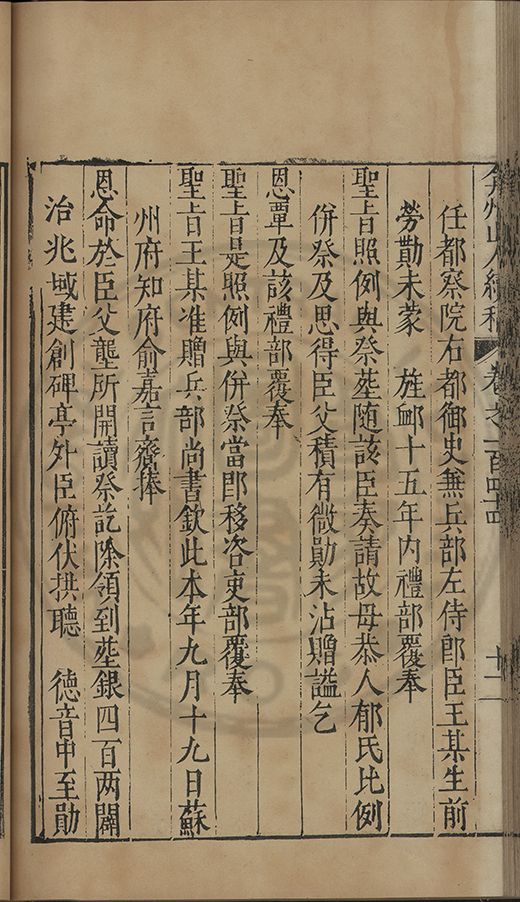 弇州山人續稿 卷之一百四十四 十二
任都察院右都御史兼兵部左侍郎臣王某生前
勞勩未蒙 旌卹十五年內禮部覆奉
聖旨照例與祭塟随該臣奏請故母恭人郁氏比例
併祭及思得臣父積有微勛未沾贈謚乞
恩覃及該禮部覆奉
聖旨是照例與併祭當卽移咨吏部覆奉
聖旨王某准贈兵部尚書欽此本年九月十九日蘇
州府知府俞嘉言齎捧
恩命於臣父壟所開讀祭訖除領到塟銀四百两闢
治兆域建創碑亭外臣俯伏拱聽 德音中至勛